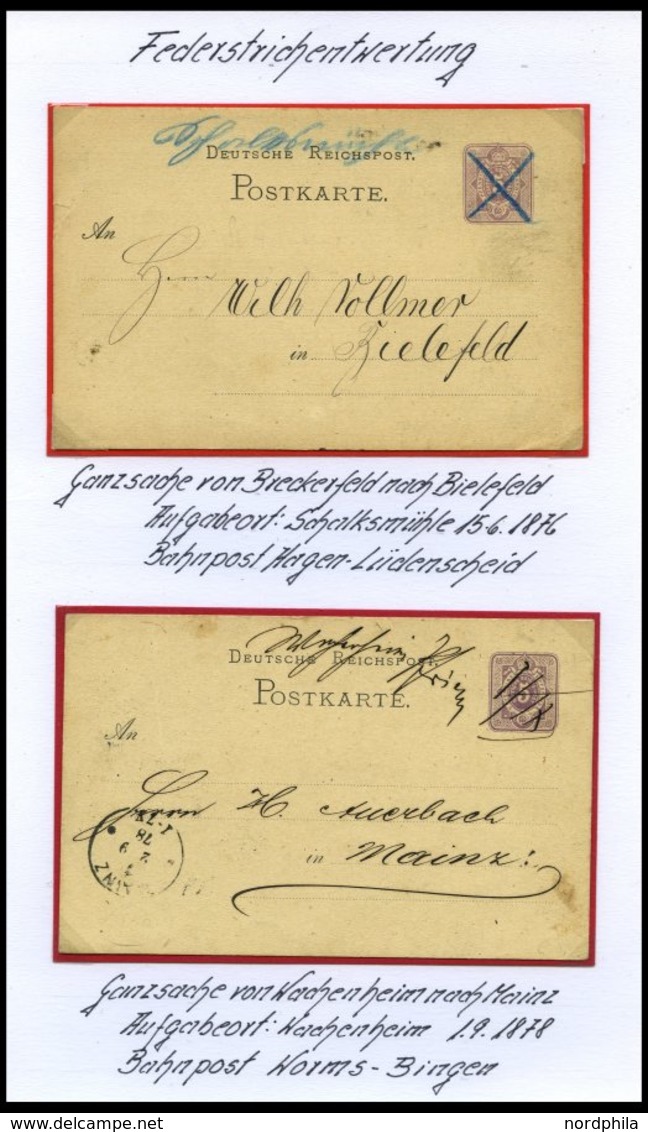 Federstrichentwertung
Schalksmühle
DEUTSCHE REICHSPOST.
POSTKARTE.
An
Herrn
Wilh Vollmer
in Bielefeld
Ganzsache von Breckerfeld nach Bielefeld
Aufgabeort: Schalksmühle 15.6.1876
Bahnpost Hagen-Lüdenscheid
DEUTSCHE REICHSPOST.
POSTKARTE.
5
1/IX
An
Herrn H. Auerbach
in Mainz!
Ganzsache von Wachenheim nach Mainz
Aufgabeort: Wachenheim 1.9.1878
Bahnpost Worms-Bingen
www.delcampe.net
nordphila